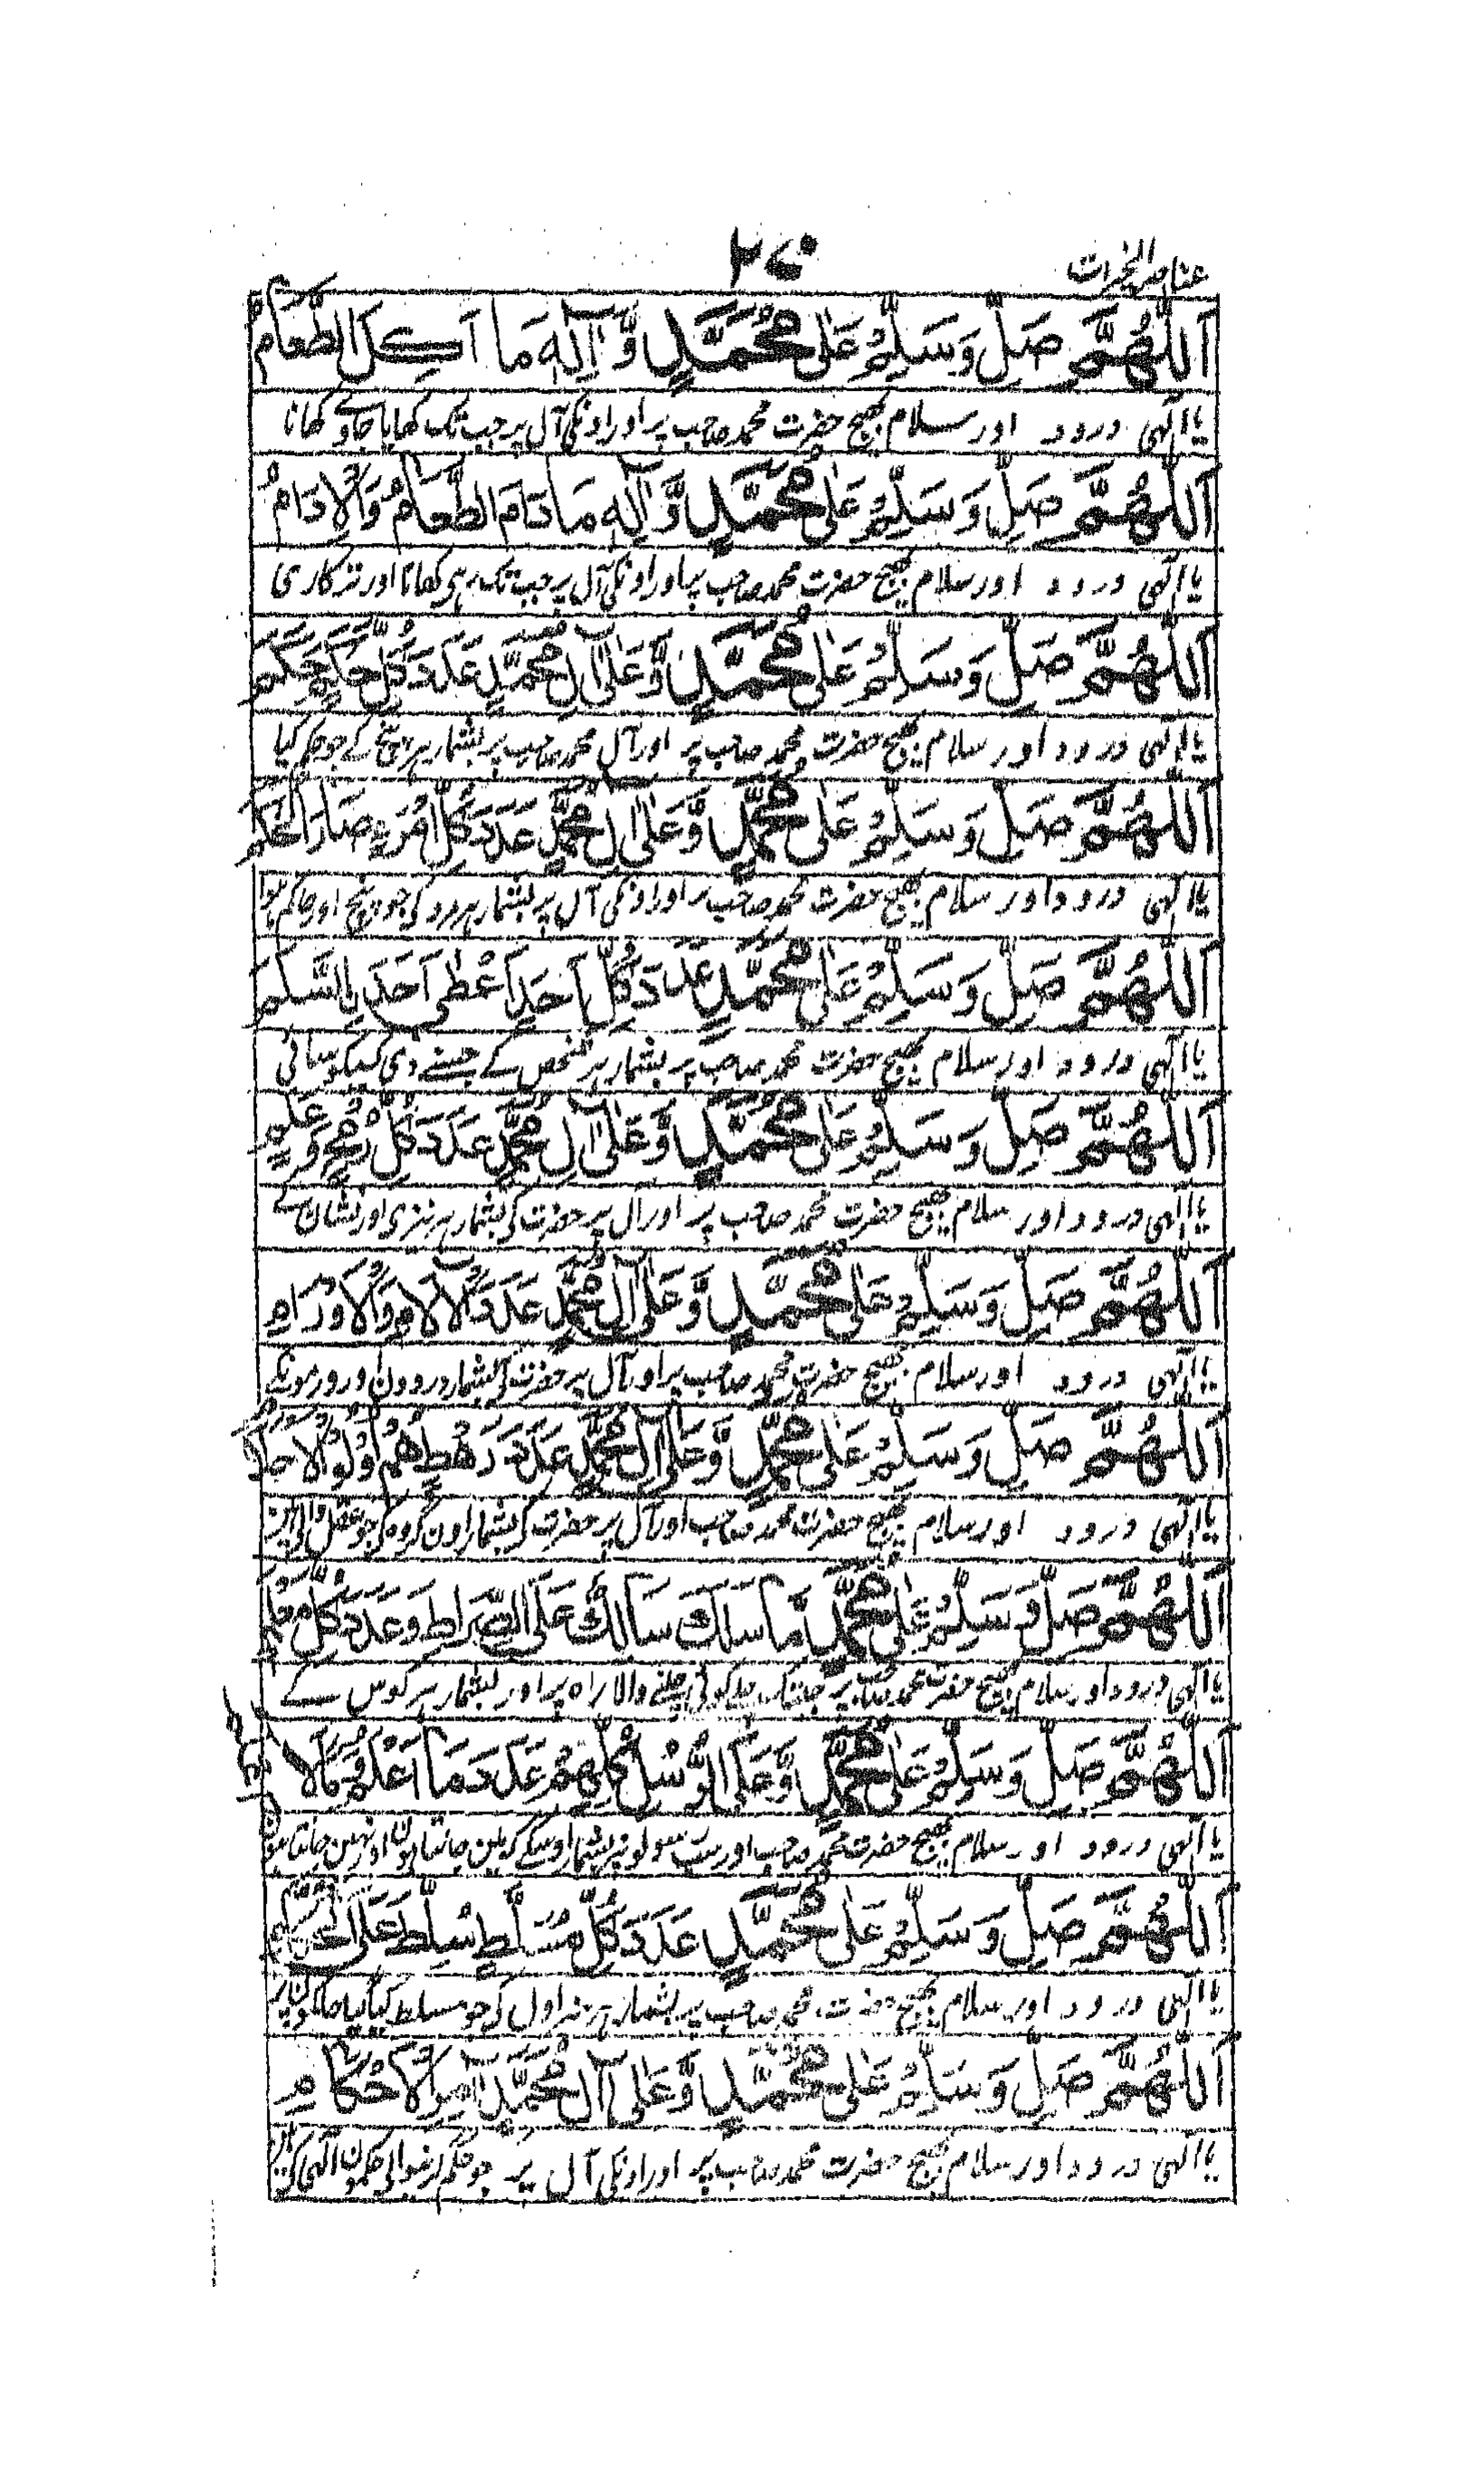 عناصر الخیرات
۲۷۰
اَللّٰهُمَّ صَلِّ وَسَلِّمْ عَلٰی مُحَمَّدٍ وَّاٰلِهٖ مَا اُكِلَ الطَّعَامُ
یا الٰہی درود اور سلام بھیج حضرت محمد صاحب پر اور اونکی آل پر جب تک کھایا جاوے کھانا
اَللّٰهُمَّ صَلِّ وَسَلِّمْ عَلٰی مُحَمَّدٍ وَّاٰلِهٖ مَا دَامَ الطَّعَامُ وَالْاِدَامُ
یا الٰہی درود اور سلام بھیج حضرت محمد صاحب پر اور اونکی آل پر جب تک رہی کھانا اور ترکاری
اَللّٰهُمَّ صَلِّ وَسَلِّمْ عَلٰی مُحَمَّدٍ وَّعَلٰی اٰلِ مُحَمَّدٍ عَدَدَ كُلِّ حَكَمٍ حَكَمَ
یا الٰہی درود اور سلام بھیج حضرت محمد صاحب پر اور آل محمد صاحب پر بشمار ہر پنچ کے جو حکم کیا
اَللّٰهُمَّ صَلِّ وَسَلِّمْ عَلٰی مُحَمَّدٍ وَّعَلٰی اٰلِ مُحَمَّدٍ عَدَدَ كُلِّ امْرَءٍ صَارَ الْحَكَمَ
یا الٰہی درود اور سلام بھیج حضرت محمد صاحب پر اور اونکی آل پر بشمار ہر مرد کی جو پنچ اور حاکم ہوا
اَللّٰهُمَّ صَلِّ وَسَلِّمْ عَلٰی مُحَمَّدٍ عَدَدَ كُلِّ اَحَدٍ اَعْطٰی اَحَدًا بِالسَّلَمِ
یا الٰہی درود اور سلام بھیج حضرت محمد صاحب پر بشمار ہر شخص کے جسنے دی کسیکو سائی
اَللّٰهُمَّ صَلِّ وَسَلِّمْ عَلٰی مُحَمَّدٍ وَّعَلٰی اٰلِ مُحَمَّدٍ عَدَدَ كُلِّ رُمْحٍ وَّعَلَمٍ
یا الٰہی درود اور سلام بھیج حضرت محمد صاحب پر اور آل پر حضرت کی بشمار ہر نیزی اور نشان کے
اَللّٰهُمَّ صَلِّ وَسَلِّمْ عَلٰی مُحَمَّدٍ وَّعَلٰی اٰلِ مُحَمَّدٍ عَدَدَ الْاٰلَامِ وَالْاَوْرَامِ
یا الٰہی درود اور سلام بھیج حضرت محمد صاحب پر اور آل پر حضرت کی بشمار دردون اور ورمونکے
اَللّٰهُمَّ صَلِّ وَسَلِّمْ عَلٰی مُحَمَّدٍ وَّعَلٰی اٰلِ مُحَمَّدٍ عَدَدَ رَهْطٍ هُمْ اُولُو الْاَحْلَامِ
یا الٰہی درود اور سلام بھیج حضرت محمد صاحب اور آل پر حضرت کی بشمار اون گروہ کی جو عقل والی ہین
اَللّٰهُمَّ صَلِّ وَسَلِّمْ عَلٰی مُحَمَّدٍ مَّا سَلَكَ سَالِكٌ عَلَی الصِّرَاطِ وَعَدَدَ كُلِّ
یا الٰہی درود اور سلام بھیج حضرت محمد صاحب پر جبتک چلے کوئی چلنے والا راہ پر اور بشمار ہر کوس کے
اَللّٰهُمَّ صَلِّ وَسَلِّمْ عَلٰی مُحَمَّدٍ وَّعَلَی الرُّسُلِ كُلِّهِمْ عَدَدَ مَا اَعْلَمُ وَمَا لَا
یا الٰہی درود اور سلام بھیج حضرت محمد صاحب اور سب رسولونپر بشمار اوسکے کہ مین جانتا ہون اور نہین جانتا ہون
اَللّٰهُمَّ صَلِّ وَسَلِّمْ عَلٰی مُحَمَّدٍ عَدَدَ كُلِّ مُسَلَّطٍ سُلِّطَ عَلَی
یا الٰہی درود اور سلام بھیج حضرت محمد صاحب پر بشمار ہر سزاول کی جو مسلط کیا گیا حاکمون پر
اَللّٰهُمَّ صَلِّ وَسَلِّمْ عَلٰی مُحَمَّدٍ وَّعَلٰی اٰلِ مُحَمَّدٍ اٰمِرِ الْاَحْكَامِ
یا الٰہی درود اور سلام بھیج حضرت محمد صاحب پر اور اونکی آل پر جو حکم کرنیوالی حکمون الٰہی کی ہین